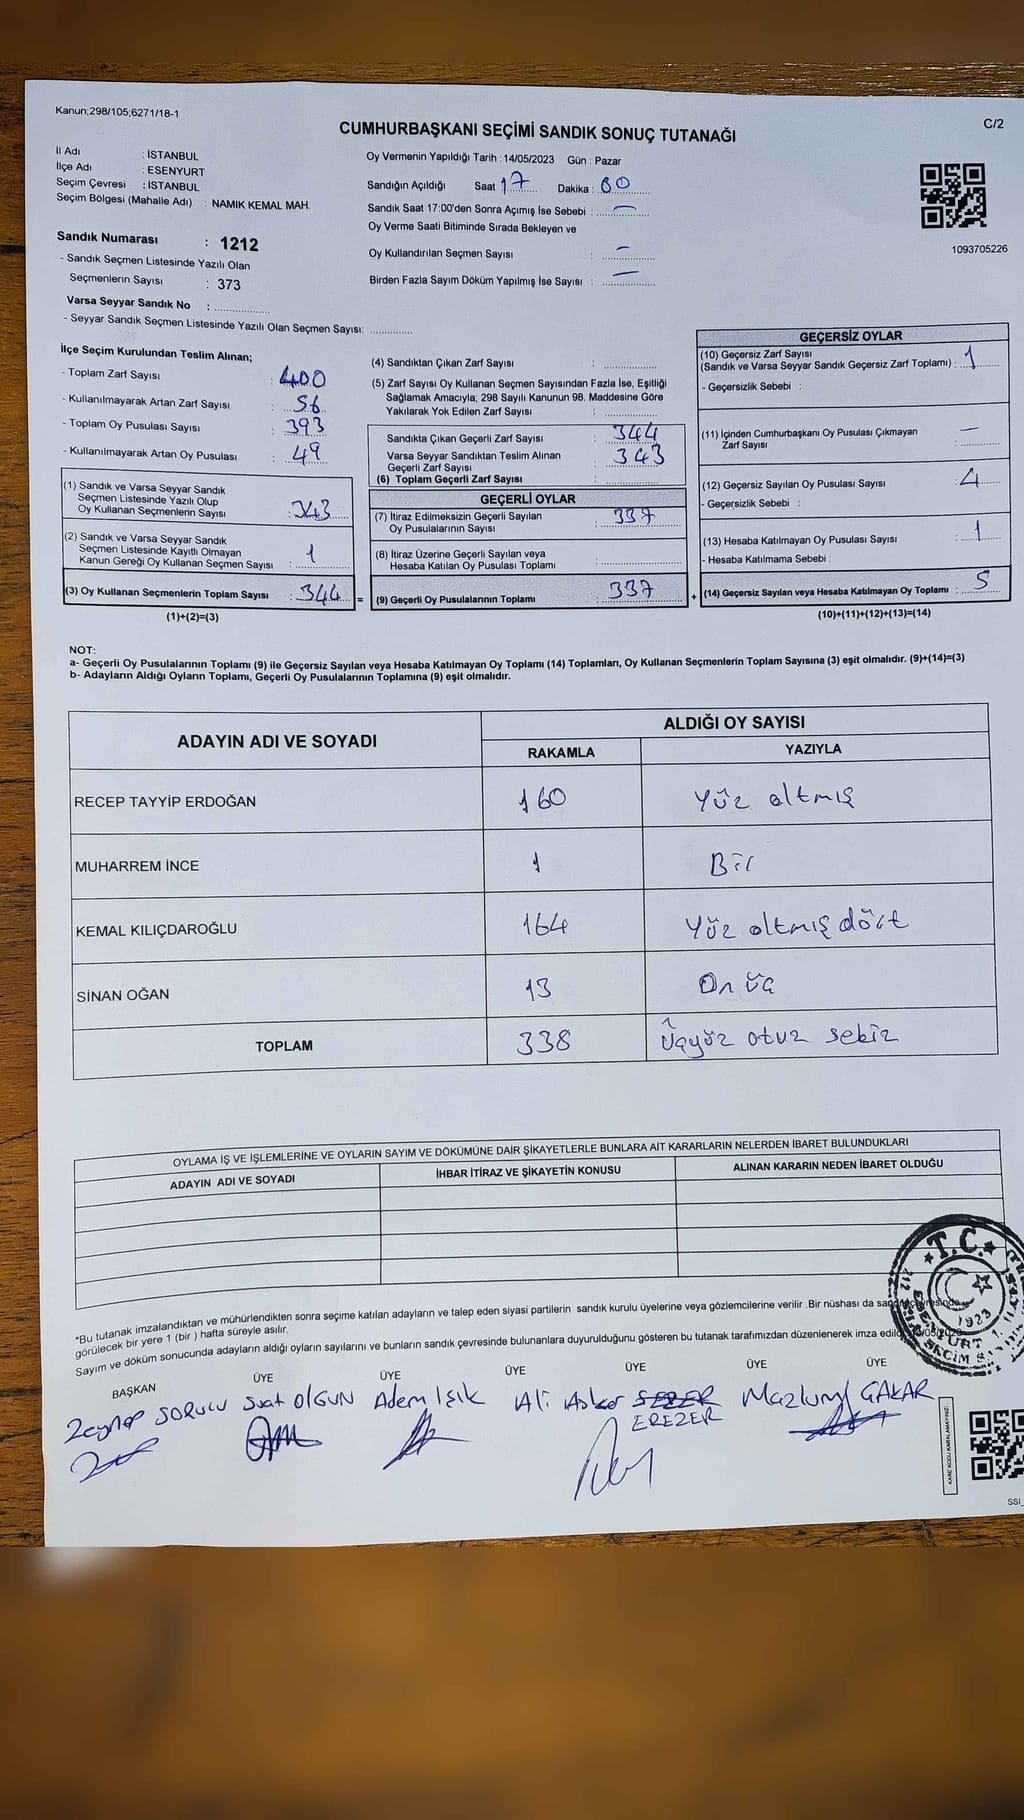 Kanun;298/105;6271/18-1
C/2
CUMHURBAŞKANI SEÇİMİ SANDIK SONUÇ TUTANAĞI
İl Adı : İSTANBUL
İlçe Adı : ESENYURT
Seçim Çevresi : İSTANBUL
Seçim Bölgesi (Mahalle Adı) : NAMIK KEMAL MAH.
Sandık Numarası : 1212
- Sandık Seçmen Listesinde Yazılı Olan
Seçmenlerin Sayısı : 373
Varsa Seyyar Sandık No :
- Seyyar Sandık Seçmen Listesinde Yazılı Olan Seçmen Sayısı:
Oy Vermenin Yapıldığı Tarih : 14/05/2023 Gün : Pazar
Sandığın Açıldığı Saat 17 Dakika :
Sandık Saat 17:00'den Sonra Açımış İse Sebebi : —
Oy Verme Saati Bitiminde Sırada Bekleyen ve
Oy Kullandırılan Seçmen Sayısı : —
Birden Fazla Sayım Döküm Yapılmış İse Sayısı : —
1093705226
İlçe Seçim Kurulundan Teslim Alınan;
- Toplam Zarf Sayısı : 400
- Kullanılmayarak Artan Zarf Sayısı : 56
- Toplam Oy Pusulası Sayısı : 393
- Kullanılmayarak Artan Oy Pusulası : 49
(1) Sandık ve Varsa Seyyar Sandık
Seçmen Listesinde Yazılı Olup
Oy Kullanan Seçmenlerin Sayısı : 343
(2) Sandık ve Varsa Seyyar Sandık
Seçmen Listesinde Kayıtlı Olmayan
Kanun Gereği Oy Kullanan Seçmen Sayısı : 1
(3) Oy Kullanan Seçmenlerin Toplam Sayısı : 344 =
(1)+(2)=(3)
(4) Sandıktan Çıkan Zarf Sayısı :
(5) Zarf Sayısı Oy Kullanan Seçmen Sayısından Fazla İse, Eşitliği
Sağlamak Amacıyla; 298 Sayılı Kanunun 98. Maddesine Göre
Yakılarak Yok Edilen Zarf Sayısı :
Sandıkta Çıkan Geçerli Zarf Sayısı : 344
Varsa Seyyar Sandıktan Teslim Alınan
Geçerli Zarf Sayısı : 343
(6) Toplam Geçerli Zarf Sayısı :
GEÇERLİ OYLAR
(7) İtiraz Edilmeksizin Geçerli Sayılan
Oy Pusulalarının Sayısı : 337
(8) İtiraz Üzerine Geçerli Sayılan veya
Hesaba Katılan Oy Pusulası Toplamı :
(9) Geçerli Oy Pusulalarının Toplamı : 337 +
GEÇERSİZ OYLAR
(10) Geçersiz Zarf Sayısı
(Sandık ve Varsa Seyyar Sandık Geçersiz Zarf Toplamı) : 1
- Geçersizlik Sebebi :
(11) İçinden Cumhurbaşkanı Oy Pusulası Çıkmayan
Zarf Sayısı : —
(12) Geçersiz Sayılan Oy Pusulası Sayısı : 4
- Geçersizlik Sebebi :
(13) Hesaba Katılmayan Oy Pusulası Sayısı : 1
- Hesaba Katılmama Sebebi :
(14) Geçersiz Sayılan veya Hesaba Katılmayan Oy Toplamı : 5
(10)+(11)+(12)+(13)=(14)
NOT:
a- Geçerli Oy Pusulalarının Toplamı (9) ile Geçersiz Sayılan veya Hesaba Katılmayan Oy Toplamı (14) Toplamları, Oy Kullanan Seçmenlerin Toplam Sayısına (3) eşit olmalıdır. (9)+(14)=(3)
b- Adayların Aldığı Oyların Toplamı, Geçerli Oy Pusulalarının Toplamına (9) eşit olmalıdır.
ADAYIN ADI VE SOYADI
ALDIĞI OY SAYISI
RAKAMLA YAZIYLA
RECEP TAYYİP ERDOĞAN 160 Yüz altmış
MUHARREM İNCE 1 Bir
KEMAL KILIÇDAROĞLU 164 Yüz altmış dört
SİNAN OĞAN 13 On üç
TOPLAM 338 Üçyüz otuz sekiz
OYLAMA İŞ VE İŞLEMLERİNE VE OYLARIN SAYIM VE DÖKÜMÜNE DAİR ŞİKAYETLERLE BUNLARA AİT KARARLARIN NELERDEN İBARET BULUNDUKLARI
ADAYIN ADI VE SOYADI İHBAR İTİRAZ VE ŞİKAYETİN KONUSU ALINAN KARARIN NEDEN İBARET OLDUĞU
*Bu tutanak imzalandıktan ve mühürlendikten sonra seçime katılan adayların ve talep eden siyasi partilerin sandık kurulu üyelerine veya gözlemcilerine verilir .Bir nüshası da
görülecek bir yere 1 (bir ) hafta süreyle asılır.
Sayım ve döküm sonucunda adayların aldığı oyların sayılarını ve bunların sandık çevresinde bulunanlara duyurulduğunu gösteren bu tutanak tarafımızdan düzenlenerek imza
BAŞKAN ÜYE ÜYE ÜYE ÜYE ÜYE ÜYE
Zeynep SORUCU Suat OLGUN Adem Işık Ali Asker SEZER Mazlum ÇAKAR
EREZER
T.C.
1923
KARE KODU KARALAMAYINIZ!
SSI_